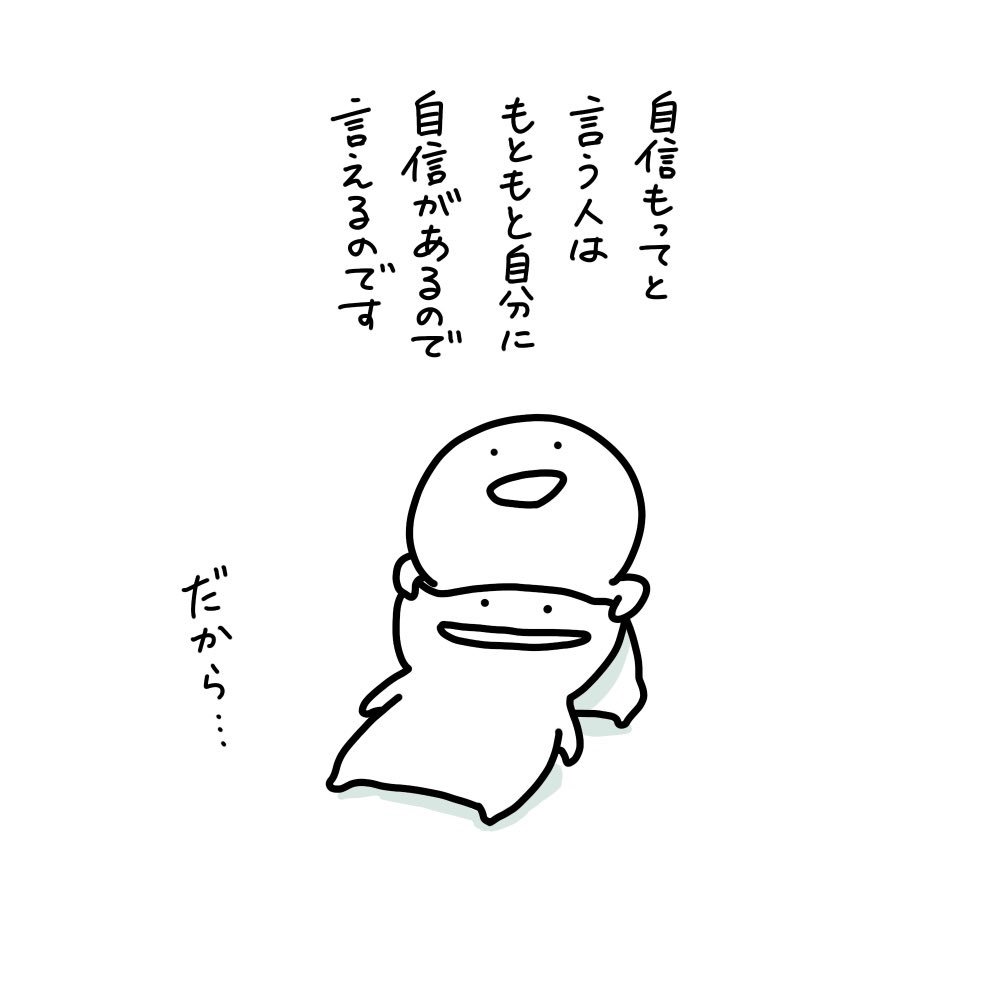 自信もってと
言う人は
もともと自分に
自信があるので
言えるのです
だから…